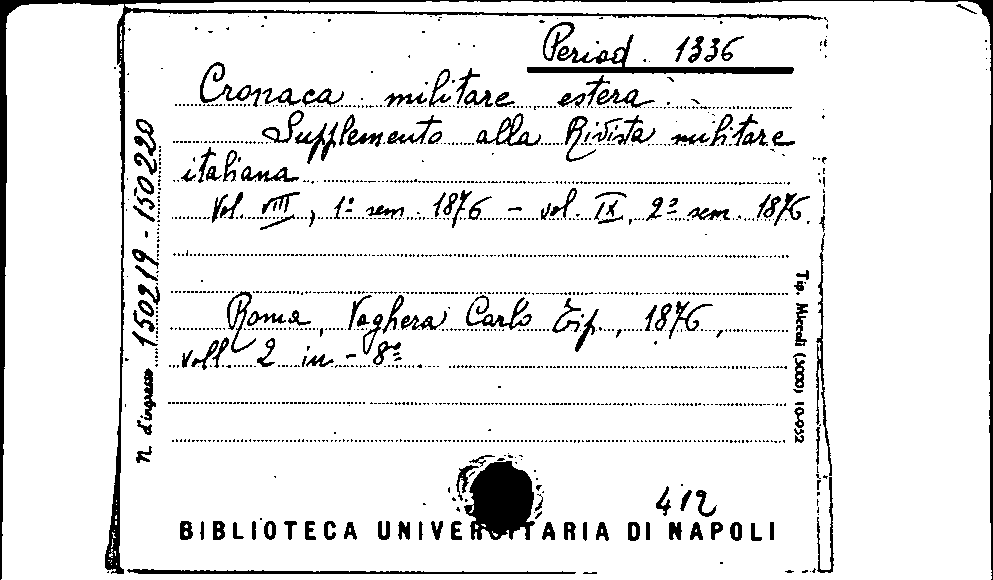 Period. 1336
Cronaca militare estera.
Supplemento alla Rivista militare
italiana
Vol. VIII, 1º sem. 1876 – vol. IX, 2º sem. 1876.
Roma, Voghera Carlo Tip., 1876,
voll. 2 in-8º.
N. d'ingresso 150219-150220
Tip. Miccoli (5000) 10-952
412
BIBLIOTECA UNIVERSITARIA DI NAPOLI